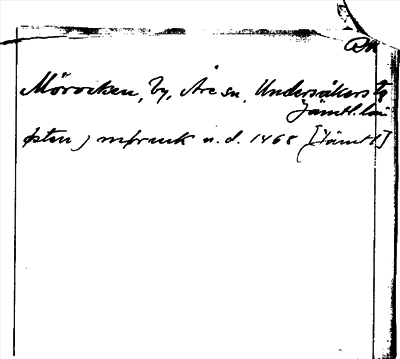 Mörviken, by, Åre sn, Undersåkers tg
Jämtl. län
østen j møruik u. d. 1468 [Jämtl]